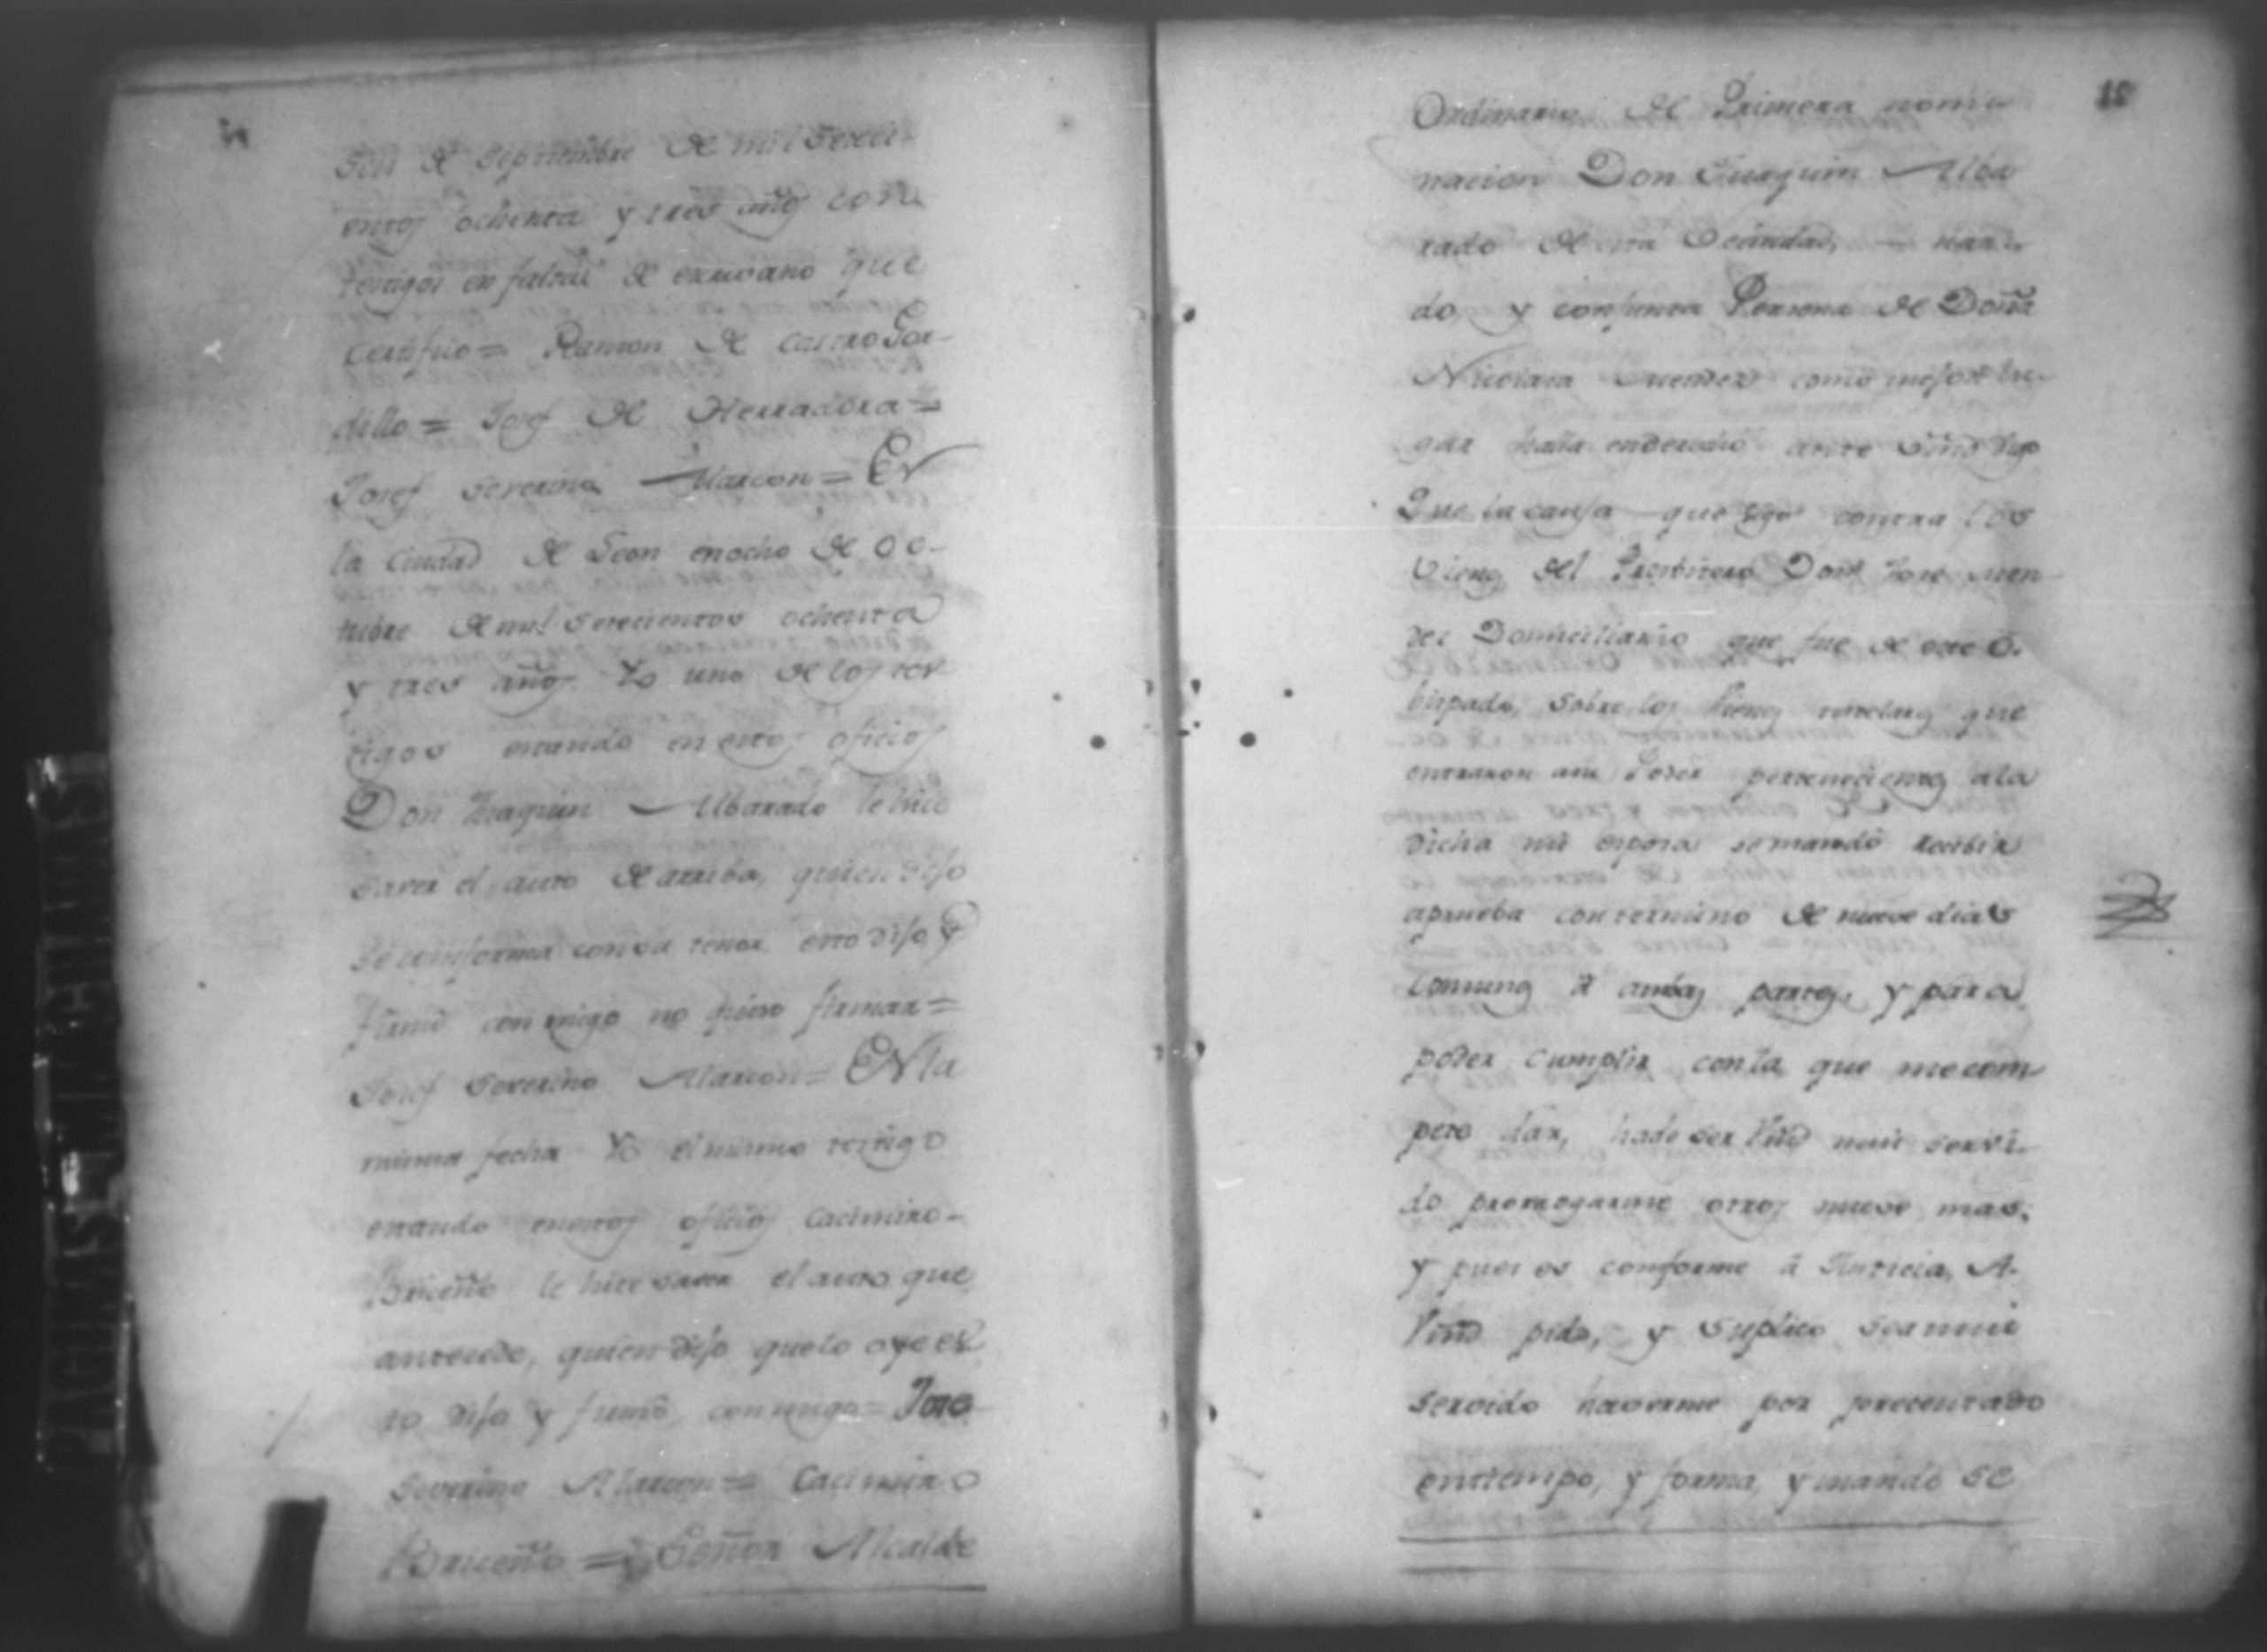 de Septiembre de mil seteci-
entos ochenta y tres años con
testigos en falta de escrivano que
certifico = Ramon de Castro Gor-
dillo = Josef de Herradora =
Josef Severino Alarcon = En
la Ciudad de Leon en ocho de Oc-
tubre de mil setecientos ochenta
y tres años. Yo uno de los tes-
tigos estando en estos oficios
Don Joaquin Albarado le hice
saver el auto de arriba, quien dijo
se comforma con su tenor esto dijo y
firmó conmigo no quiso firmar =
Josef Severino Alarcon = En la
misma fecha Yo el mismo testigo
estando en estos oficios Cacimiro
Briceño le hice saver el auto que
antecede, quien dijo que lo oye es-
to dijo y firmó conmigo = Jose
Severino Alarcon = Cacimiro
Briceño = Señor Alcalde
18
Ordinario de Primera nomi
nacion Don Juaquin Alba
rado de esta Vecindad, mari-
do y conjunta Persona de Doña
Nicolasa Mendez como mejor lu-
gar halla en derecho ante Vmd digo
Que la causa que sigo contra los
vienes del Presvitero Don Jose Men-
des Domiciliario que fue de este O-
bispado, sobre los vienes que
entraron a su Poder pertenecientes a la
dicha mi esposa se mandó recibir
a prueba con termino de nueve dias
comunes a ambas partes, y para
poder cumplir con la que me com
pete dar, ha de ser Vmd mui servi-
do prorrogarme otros nueve mas,
y pues es comforme á Justicia, A
Vmd pido, y suplico sea mui
servido haverme por precentado
en tiempo, y forma y mandó se